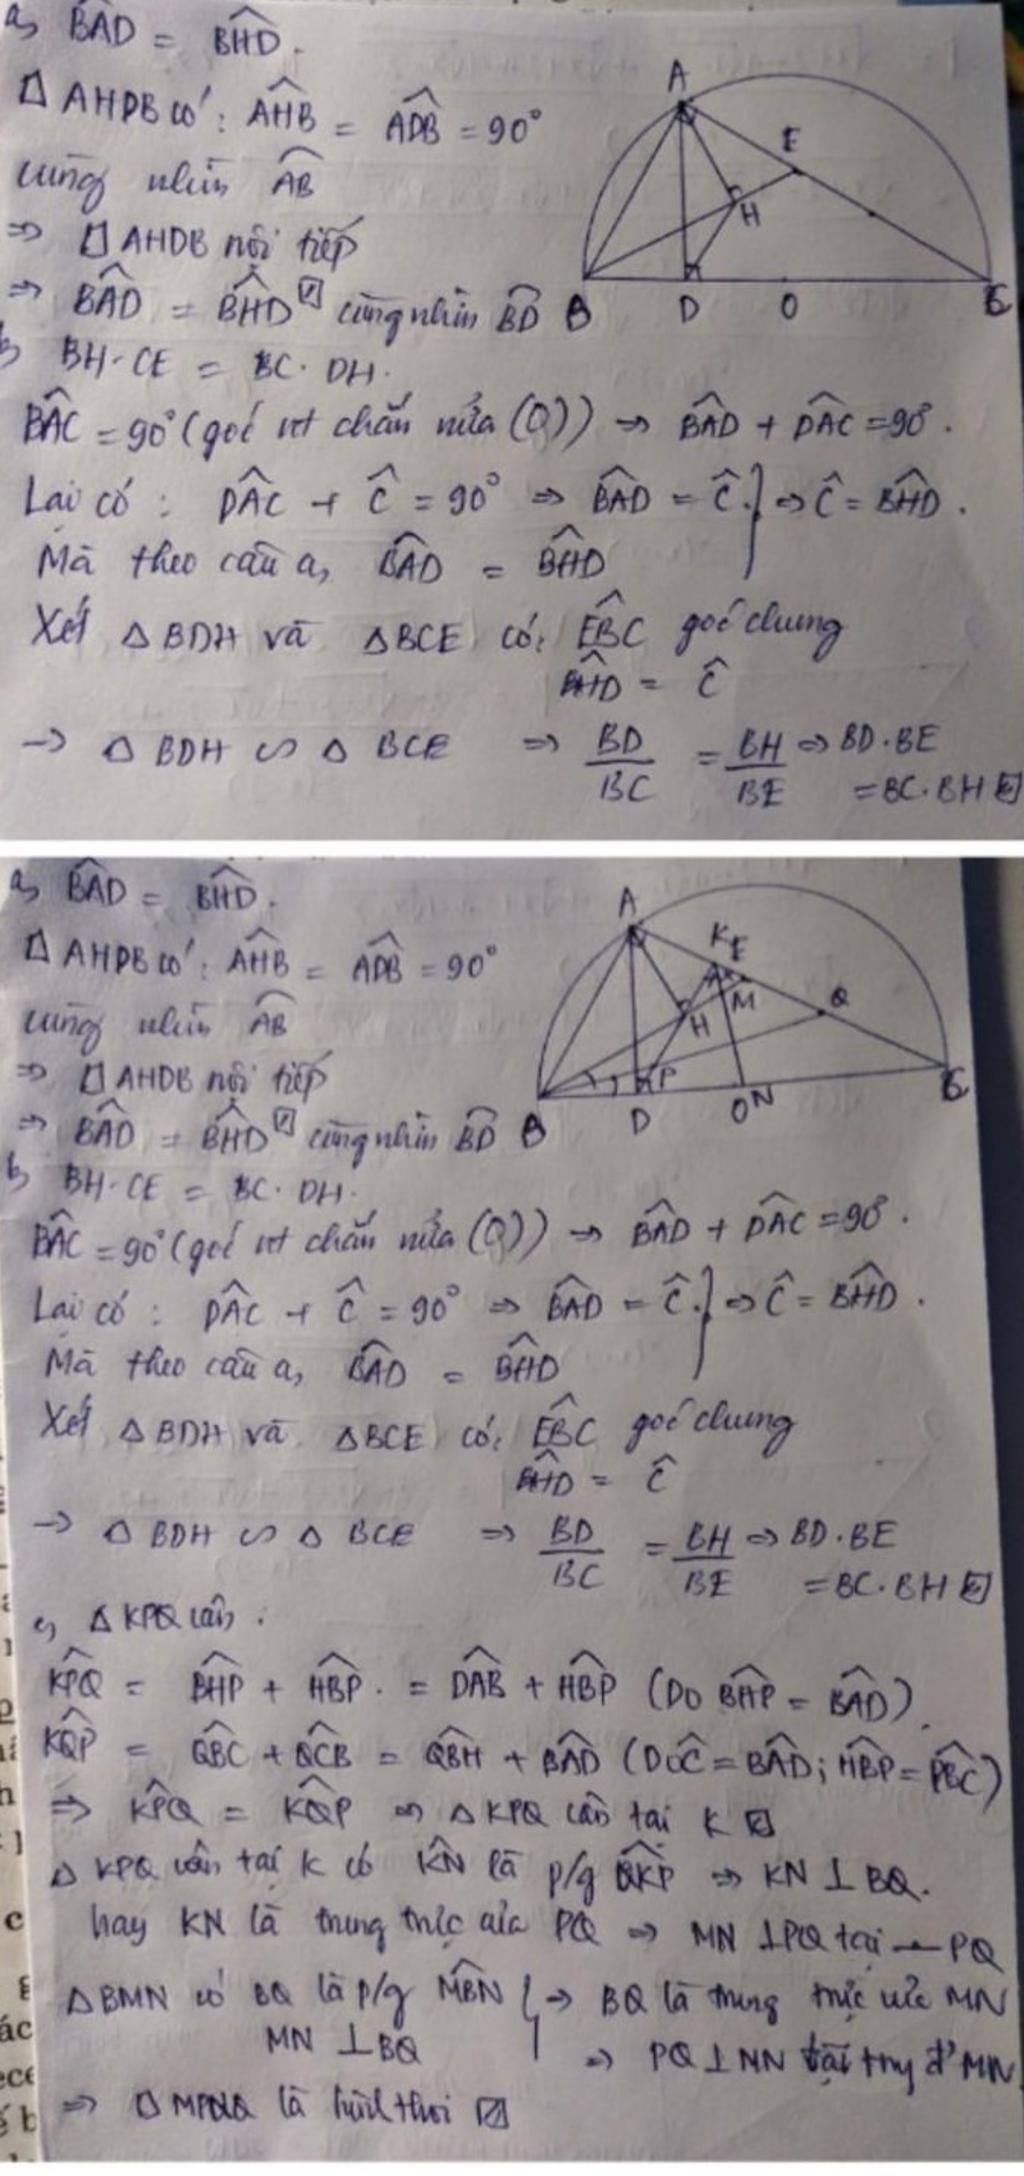 a, BAD = BHD.
A
E
H
B
D
O
C
□ AHDB có: AHB = ADB = 90°
cùng nhìn AB
=> □ AHDB nội tiếp
=> BAD = BHD cùng nhìn BD
b, BH.CE = BC.DH.
BAC = 90° (góc nt chắn nửa (O)) => BAD + DAC = 90°.
Lại có: DAC + C = 90° => BAD = C } => C = BHD.
Mà theo câu a, BAD = BHD
Xét △BDH và △BCE có: EBC góc chung
BHD = C
-> △ BDH ∽ △ BCE => BD/BC = BH/BE => BD.BE
= BC.BH
a, BAD = BHD.
A
K
E
M
Q
H
P
B
D
O
N
C
□ AHDB có: AHB = ADB = 90°
cùng nhìn AB
=> □ AHDB nội tiếp
=> BAD = BHD cùng nhìn BD
b, BH.CE = BC.DH.
BAC = 90° (góc nt chắn nửa (O)) => BAD + DAC = 90°.
Lại có: DAC + C = 90° => BAD = C } => C = BHD.
Mà theo câu a, BAD = BHD
Xét △BDH và △BCE có: EBC góc chung
BHD = C
-> △ BDH ∽ △ BCE => BD/BC = BH/BE => BD.BE
= BC.BH
c, △ KPQ cân.
KPQ = BHP + HBP = DAB + HBP (Do BHP = BAD).
KQP = QBC + QCB = QBH + BAD (Do C = BAD; HBP = PBC)
=> KPQ = KQP => △ KPQ cân tại K
△ KPQ cân tại K có KN là p/g QKP => KN ⊥ BQ.
hay KN là trung trực của PQ => MN ⊥ PQ tại PQ
△BMN có BQ là p/g MBN } => BQ là trung trực của MN
MN ⊥ BQ => PQ ⊥ MN tại MN
=> □ MPNQ là hình thoi